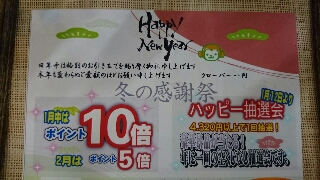 Happy
New Year
旧年中は格別のお引き立てを賜り厚く御礼申し上げます
本年も変わらぬご愛顧のほどお願い申し上げます
クローバー一円
冬の感謝祭
1月中は
ポイント10倍
2月はポイント5倍
1月12日より
ハッピー抽選会
4,320円以上で1回抽選!